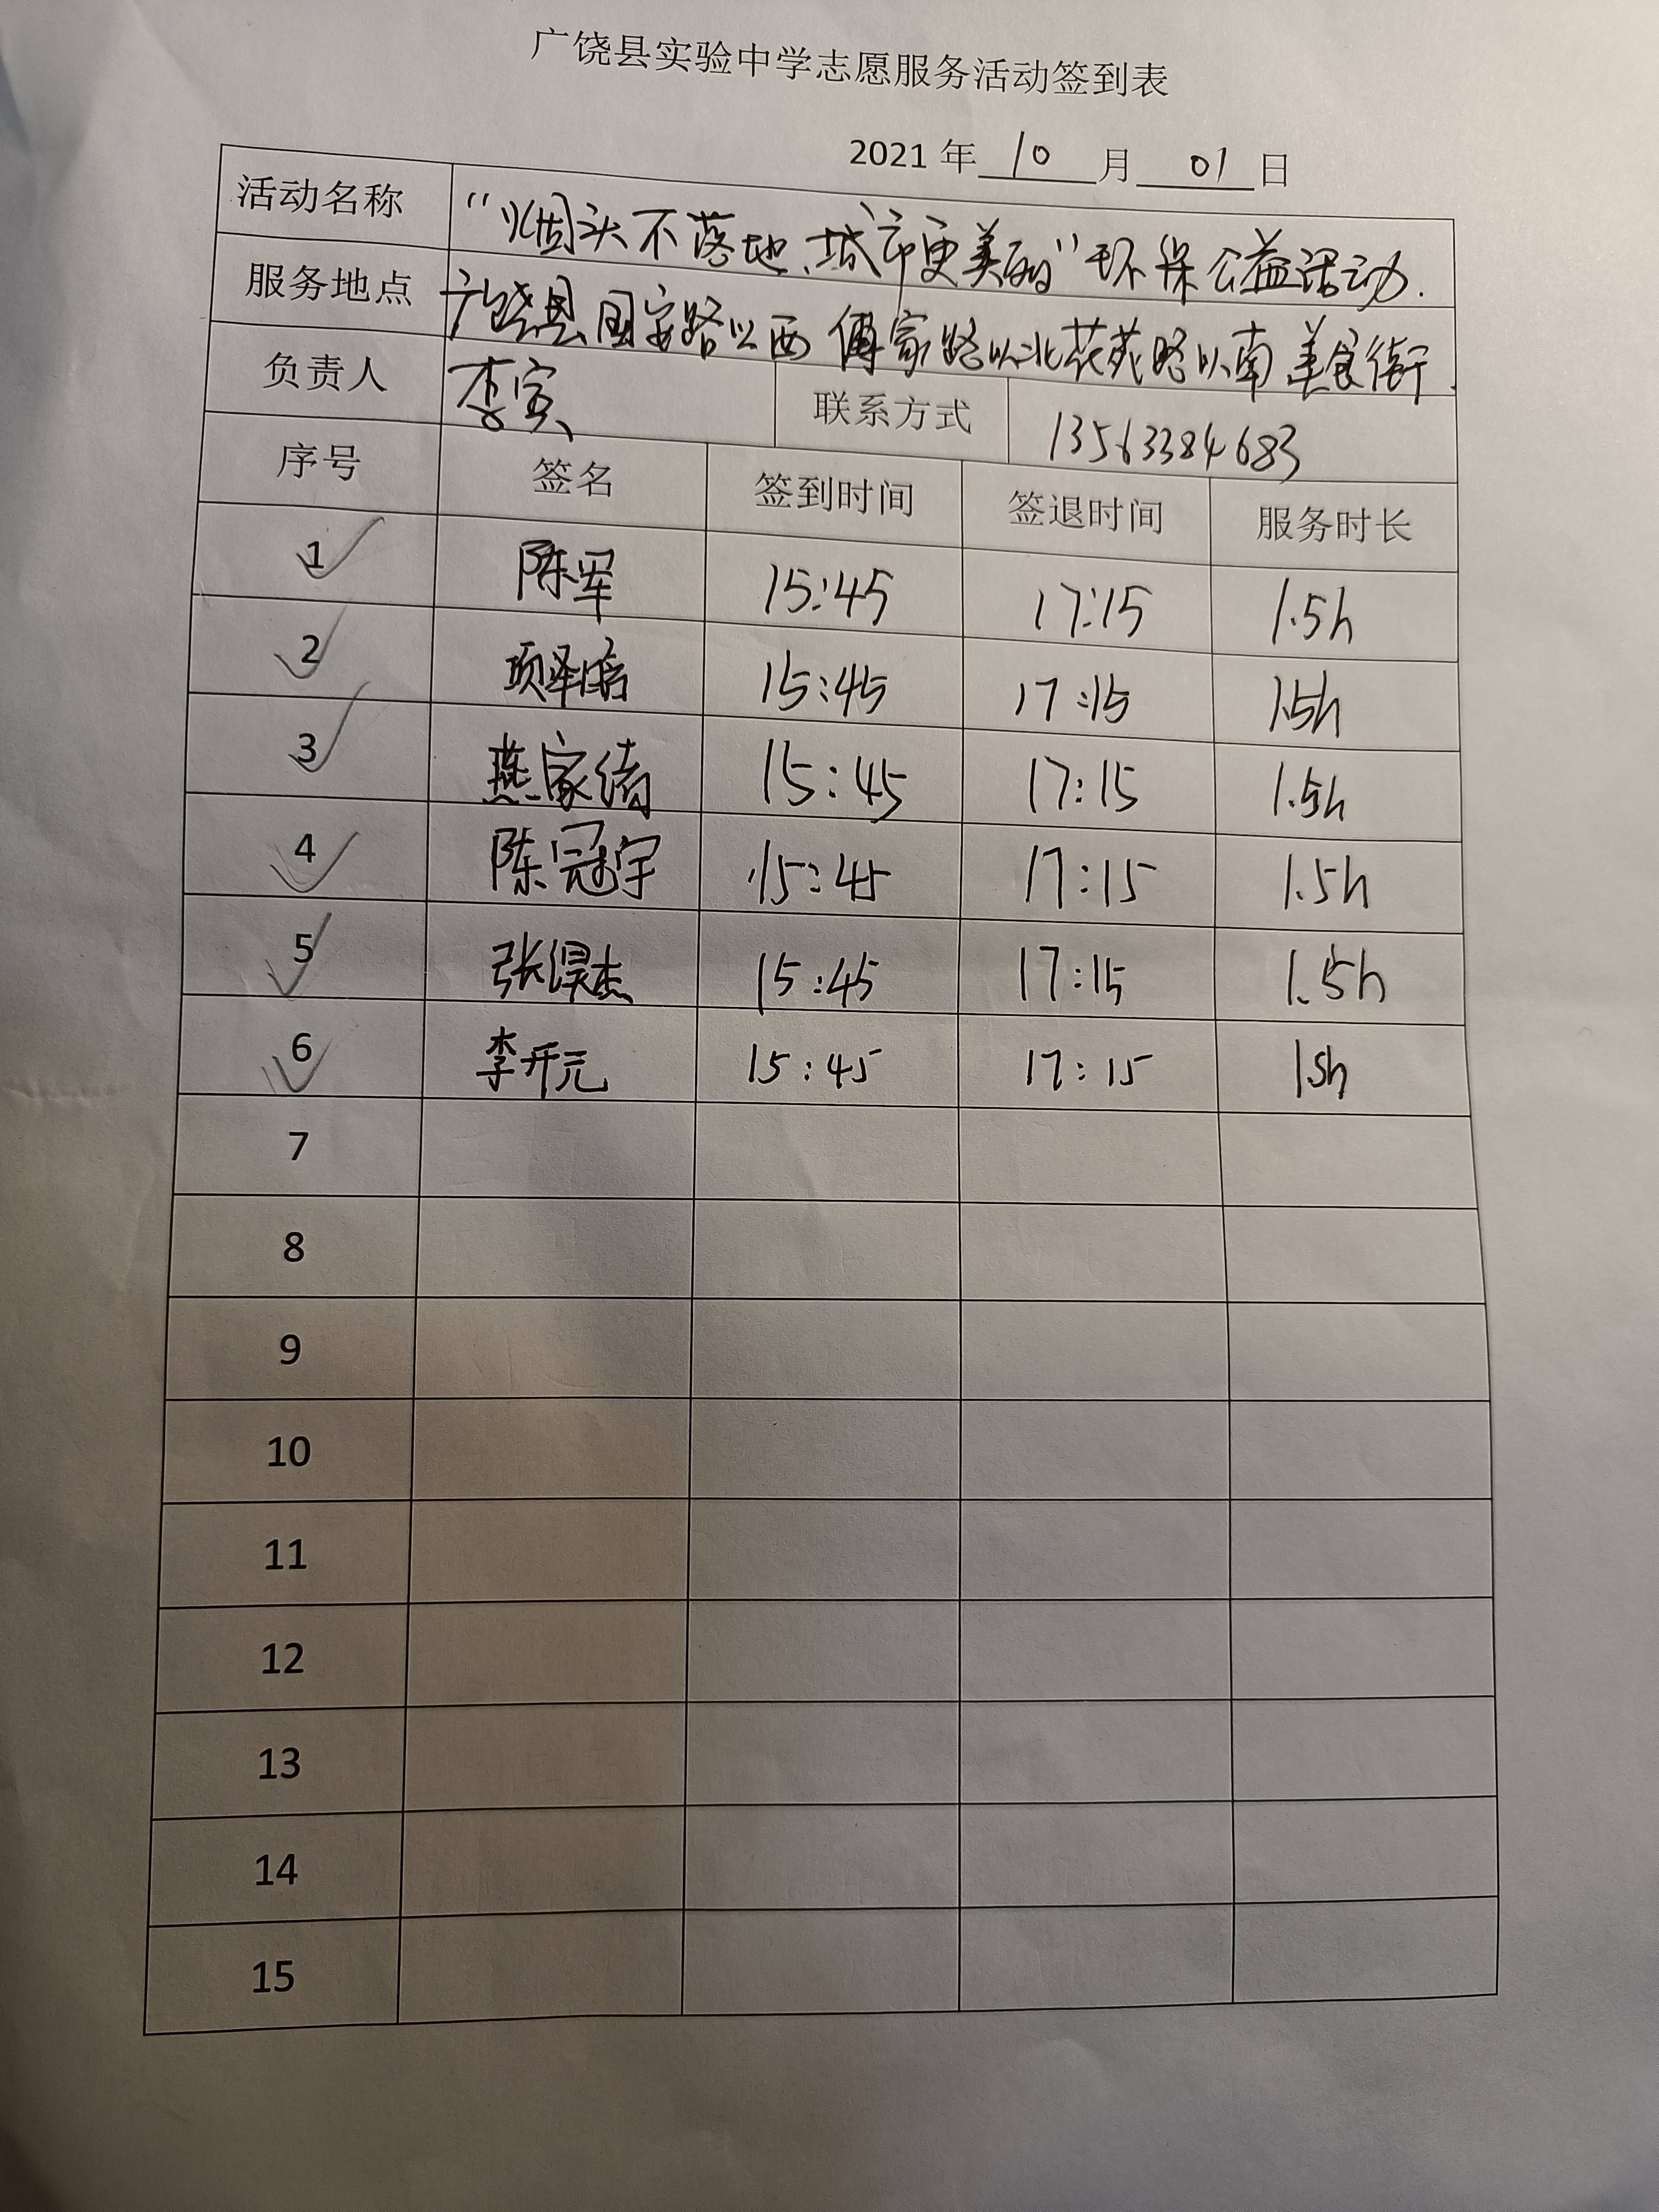 广饶县实验中学志愿服务活动签到表
2021 年 10 月 01 日
活动名称 "烟头不落地、城市更美丽"环保公益活动.
服务地点 广饶县国安路以西 傅家路以北花苑路以南 美食街.
负责人 李寅 联系方式 13563384683
序号 签名 签到时间 签退时间 服务时长
1 陈军 15:45 17:15 1.5h
2 项泽 15:45 17:15 1.5h
3 燕家绪 15:45 17:15 1.5h
4 陈冠宇 15:45 17:15 1.5h
5 张淏杰 15:45 17:15 1.5h
6 李开元 15:45 17:15 1.5h
7
8
9
10
11
12
13
14
15